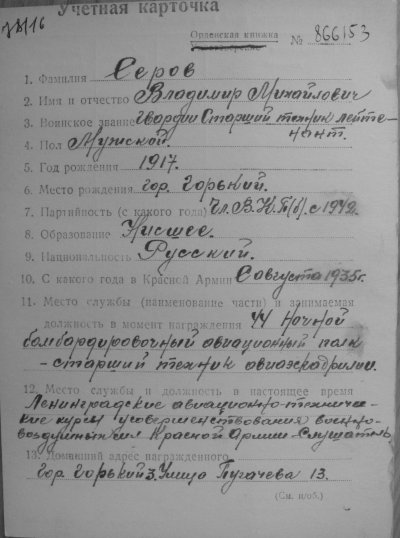 78/16
Учетная карточка
Орденская книжка
№ 866153
1. Фамилия Серов
2. Имя и отчество Владимир Михайлович
3. Воинское звание гвардии Старший техник лейте-
нант.
4. Пол Мужской.
5. Год рождения 1917.
6. Место рождения гор. Горький.
7. Партийность (с какого года) Чл. В.К.П(б). с 1942.
8. Образование Низшее.
9. Национальность Русский.
10. С какого года в Красной Армии С августа 1935г.
11. Место службы (наименование части) и занимаемая
должность в момент награждения 44 Ночной
бомбардировочный авиационный полк
- старший техник авиаэскадрилии.
12. Место службы и должность в настоящее время
Ленинградские авиационно-техничес-
кие курсы усовершенствования военно-
воздушных сил Красной Армии - Слушатель.
13. Домашний адрес награжденного
гор. Горький 3. Улица Пугачева 13.
(См. н/об.)